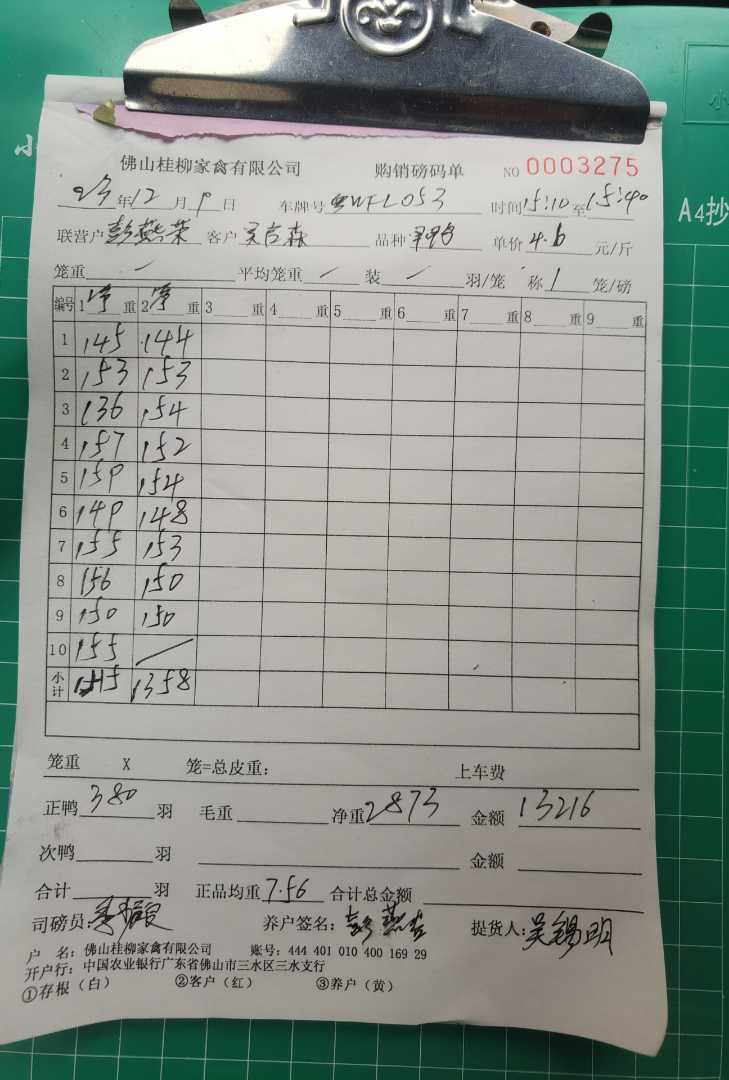 小
A4抄
佛山桂柳家禽有限公司 购销磅码单 NO 0003275
23年12月9日 车牌号 粤WFL053 时间15:10至15:40
联营户彭燕荣 客户吴吉森 品种 单价4.6元/斤
笼重 / 平均笼重 / 装 / 羽/笼 称1笼/磅
编号 1净重 2净重 3 重 4 重 5 重 6 重 7 重 8 重 9 重
1 145 144
2 153 153
3 136 154
4 157 152
5 159 154
6 149 148
7 155 153
8 156 150
9 150 150
10 155 /
小计 1515 1358
笼重 X 笼=总皮重: 上车费
正鸭380羽 毛重 净重2873 金额13216
次鸭 羽 金额
合计 羽 正品均重7.56 合计总金额
司磅员: 养户签名: 提货人:吴锡明
户 名: 佛山桂柳家禽有限公司 账号: 444 401 010 400 169 29
开户行: 中国农业银行广东省佛山市三水区三水支行
①存根（白） ②客户（红） ③养户（黄）